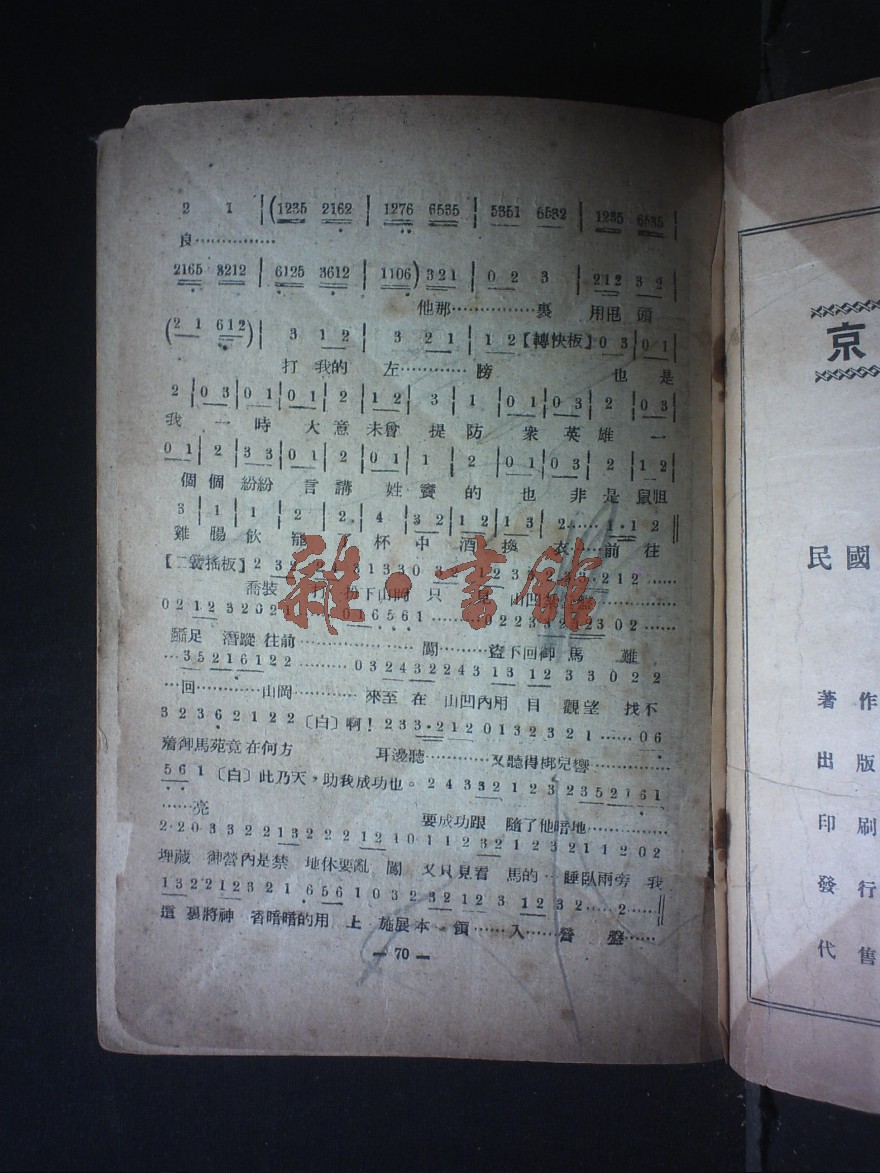 2 1 |(1235 2162 | 1276 6535 | 5351 6532 | 1235 6535 |
良……………
2165 3212 | 6125 3612 | 1106) 321 | 0 2 3 | 212 3 2 |
他那……………裏 用 頭
(2 1 612) | 3 12 | 3 21 | 12【轉快板】0 3 | 0 1 |
打 我的 左…………膀 也 是
2 | 0 3 | 0 1 | 0 1 | 2 | 12 | 3 | 1 | 0 1 | 0 3 | 2 | 0 3 |
我 一 時 大 意 未曾 提 防 衆 英 雄 一
0 1 | 2 | 3 3 | 0 1 | 2 | 0 1 | 1 | 2 | 0 1 | 0 3 | 2 | 12 |
個 個 紛紛 言 講 姓 竇 的 也 非 是 鼠胆
3 | 1 | 1 | 2 | 2. | 4 | 3 2 | 1 2 | 1 3 | 2…… | 1·1 2 ‖
雞 腸 飲 罷 杯 中 酒 換 衣……前 往
搖板】2 32
喬裝 打 扮下山岡 只 見 山凹
足 潛蹤 往前………………闖………盜下回御 馬 難
…35216122………032432243 13 12 3 3 0 2 2
回…………山岡…………來至 在 山凹內用 目 觀望 找不
3 2 3 6 2 1 2 2〔白〕啊！2 3 3·2 1 2 0 1 3 2 3 2 1……0 6
着御馬苑竟在何方 耳邊聽…………又聽得梆兒響……………
561〔白〕此乃天，助我成功也。2 4 3 3 2 1 2 3 2 3 5 2 1 6 1
……亮 要成功跟 隨了他暗地……………
埋藏 御營內是禁 地休要亂 闖 又只見看 馬的…睡臥兩旁 我
1 3 2 2 1 2 3 2 1 6 5 6 1 0 3 2 3 2 1 2 3 1 2 3 2……2……‖
這 裏將神 香暗暗的用 上 施展本…領……入……營 盤……
— 70 —
京
民國
著作
出版
印刷
發行
代售
雜·書館